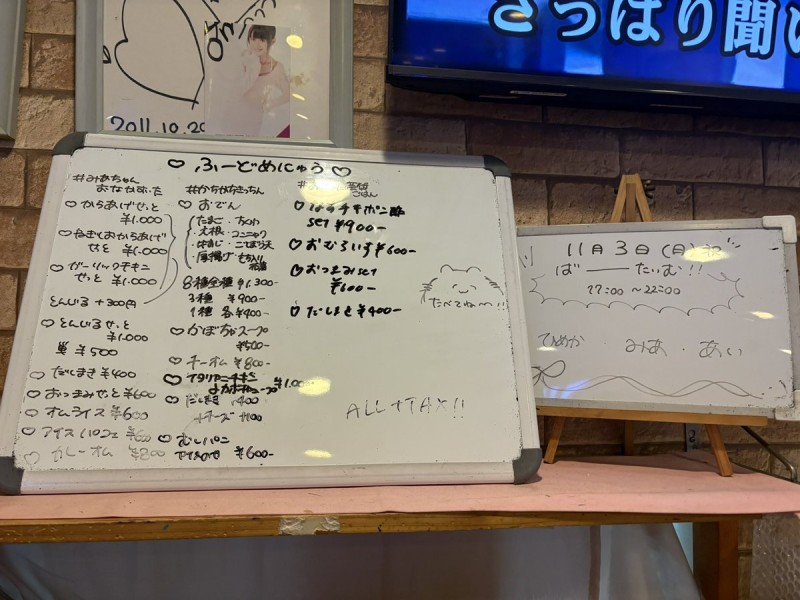 さっぱり聞
2011.10.29
♡ ふーどめにゅう ♡
#みあちゃん
おなかすいた
♡ からあげせっと
¥1.000
♡ ねぎしおからあげ
せっと ¥1.000
♡ ガーリックチキン
せっと ¥1.000
とんじる +300円
♡ とんじるせっと
¥1.000
単 ¥500
♡ だしまき ¥400
♡ おつまみせっと ¥600
♡ オムライス ¥600
♡ アイスパフェ ¥600
♡ カレーオム ¥800
♡ おでん
たまご・ちくわ
大根・コンニャク
・ごぼう天
厚揚げ・もち入り
8種全種 ¥1.300-
3種 ¥900-
1種 各¥400-
♡ かぼちゃスープ
¥500-
♡ チーオム ¥800-
¥1.000
♡ だし巻 ¥400
+チーズ ¥100
♡ むしパン
¥600-
ごはん
set ¥900-
♡ おむらいす ¥600-
♡ おつまみset
¥600-
♡ だしまき ¥400-
たべてね〜!!
ALL+TAX!!
11月3日(月)祝
ばーたいむ!!
17:00 〜22:00
ひめか・みあ・あい